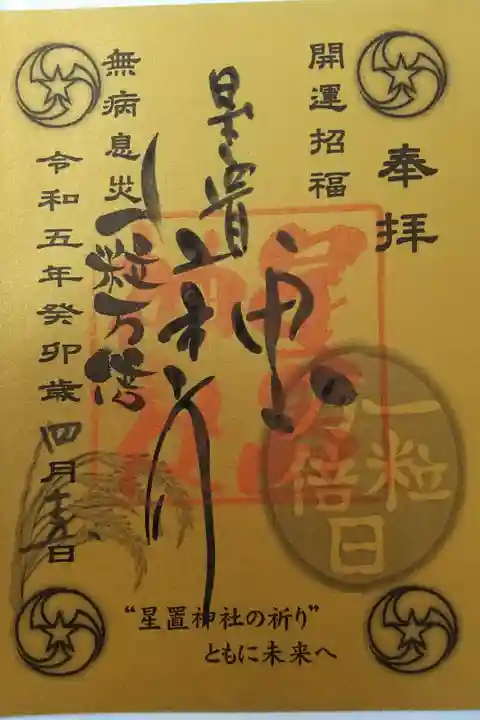 奉拝
開運招福
星置神社
一粒万倍
無病息災
令和五年癸卯歳四月十五日
一粒
万倍
日
“星置神社の祈り”
ともに未来へ